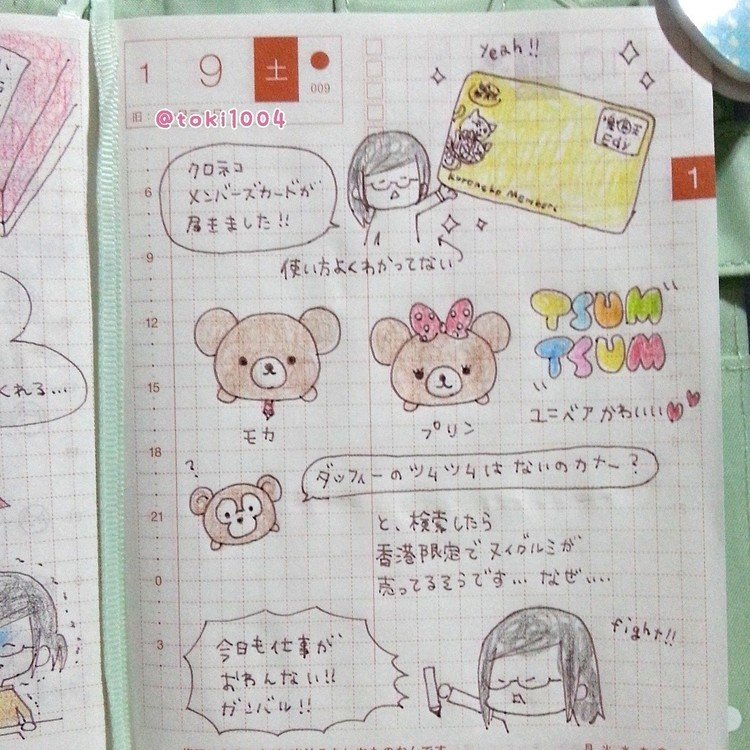 1 9 土 009
旧:
@toki1004
1
yeah!!
クロネコ
メンバーズカードが
届きました!!
楽天
Edy
Kuroneko Members
使い方よくわかってない
6
9
12
15
18
21
0
3
TSUM
TSUM
モカ
プリン
ユニベアかわいい
くれる...
?
ダッフィーのツムツムはないのカナー?
と、検索したら
香港限定でヌイグルミが
売ってるそうです... なぜ....
今日も仕事が
おわんない!!
ガンバル!!
fight!!